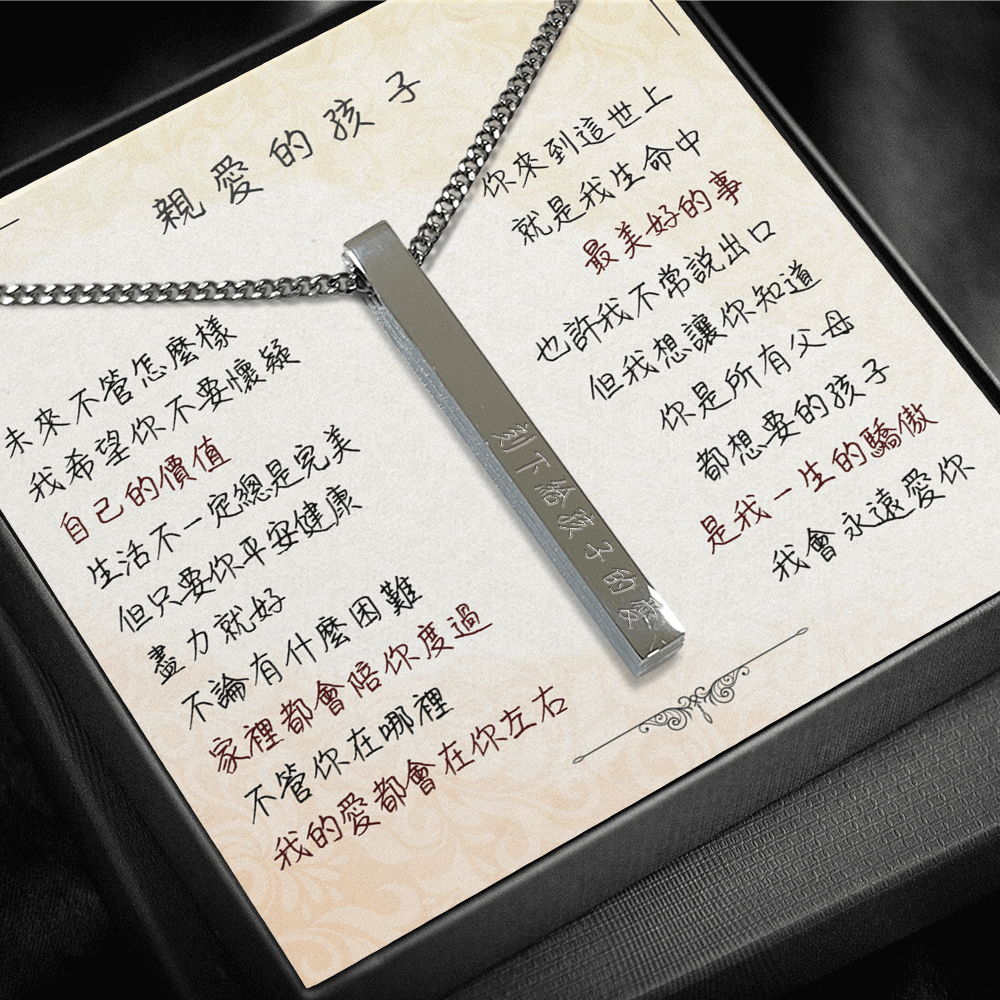 親愛的孩子
你來到這世上
就是我生命中
最美好的事
也許我不常說出口
但我想讓你知道
你是所有父母
都想要的孩子
是我一生的驕傲
我會永遠愛你
未來不管怎麼樣
我希望你不要懷疑
自己的價值
生活不一定總是完美
但只要你平安健康
盡力就好
不論有什麼困難
家裡都會陪你度過
不管你在哪裡
我的愛都會在你左右
刻下給孩子的愛